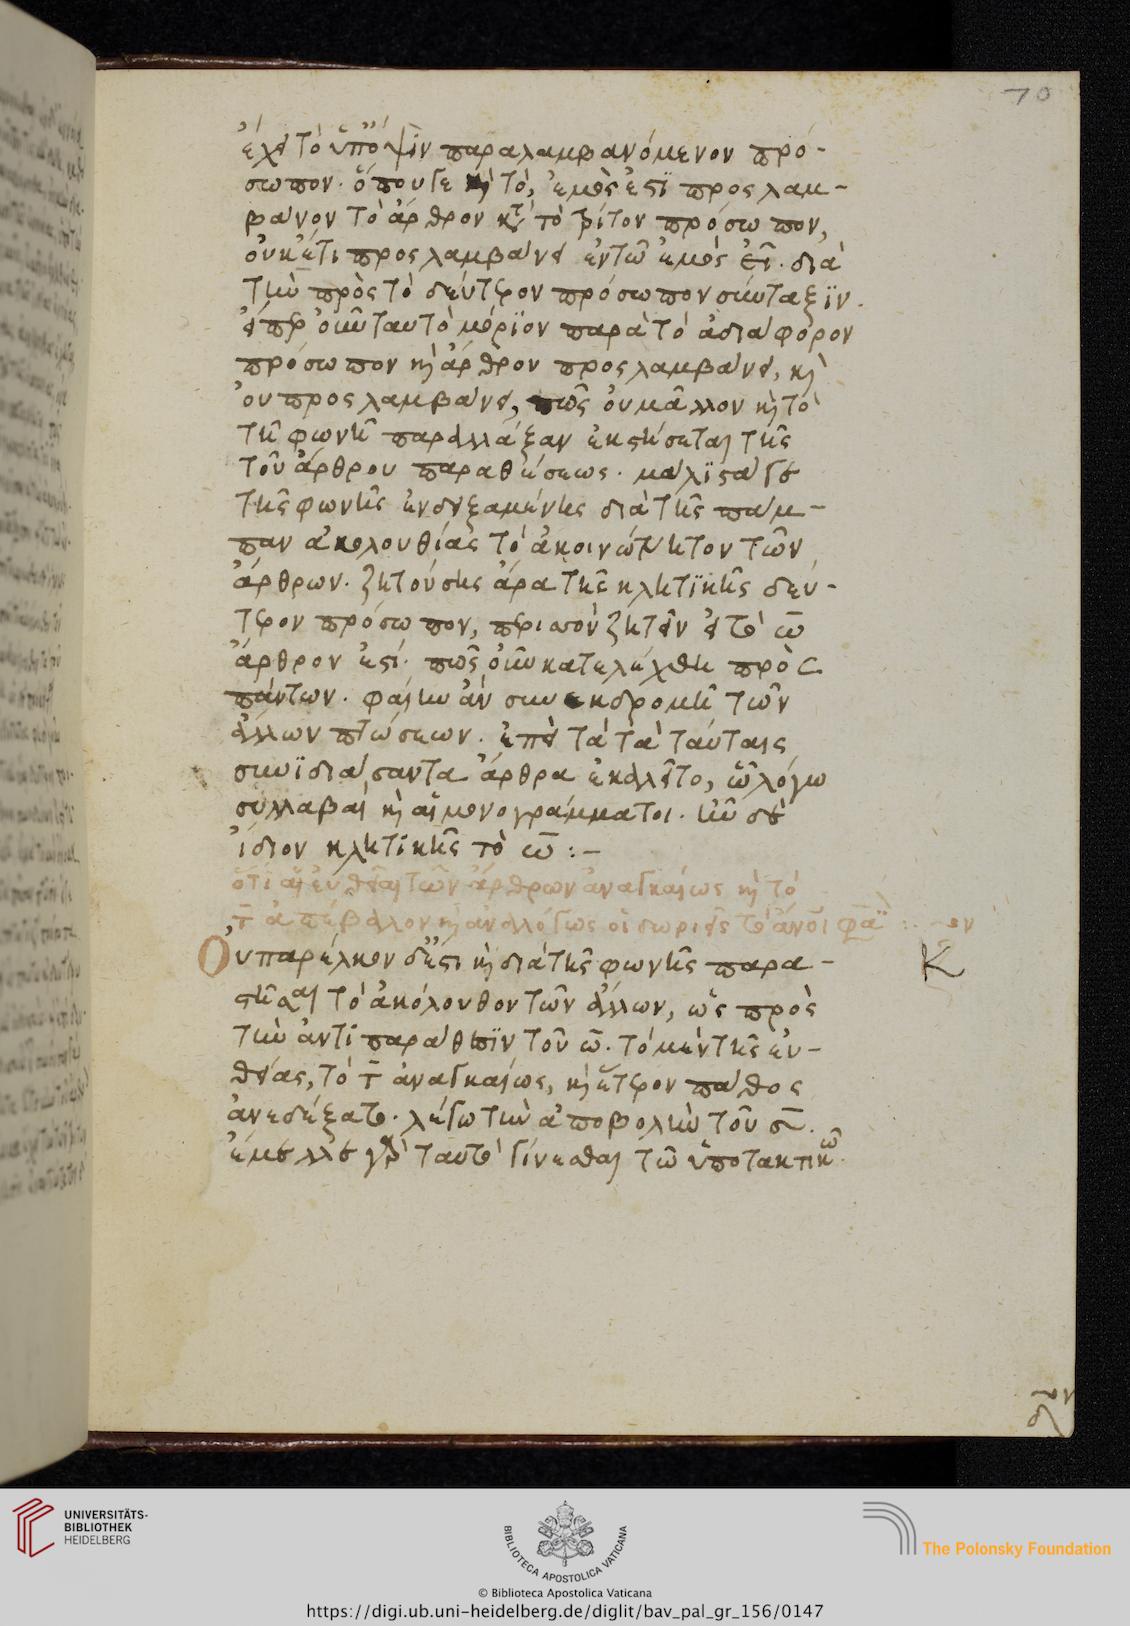 70
ἔχει τὸ ὑπ' ὄψιν παραλαμβανόμενον πρό-
σωπον. ὅπου γε καὶ τὸ, ἐμός ἐστι προσλαμ-
βάνον τὸ ἄρθρον κατὰ τὸ τρίτον πρόσωπον,
οὐκέτι προσλαμβάνει ἐν τῶ ἐμὸς εἶ. διὰ
τὴν πρὸς τὸ δεύτερον πρόσωπον σύνταξιν.
εἴπερ οὖν ταυτὸ μόριον παρὰ τὸ διάφορον
πρόσωπον καὶ ἄρθρον προσλαμβάνει, καὶ
οὐ προσλαμβάνει, πῶς οὐ μᾶλλον καὶ τὸ
τῆ φωνῆ παραλλάξαν ἐκστήσεται τῆς
τοῦ ἄρθρου παραθέσεως. μάλιστά γε
τῆς φωνῆς ἐνδειξαμένης διὰ τῆς πάμ-
παν ἀκολουθίας τὸ ἀκοινώνητον τῶν
ἄρθρων. ζητούσης ἄρα τῆς κλητικῆς δεύ-
τερον πρόσωπον, περισσὸν ζητεῖν εἰ τὸ ω
ἄρθρον ἐστί. πῶς οὖν κατελέχθη πρὸς
πάντων. φαίην ἂν συνεκδρομῆ τῶν
ἄλλων πτώσεων. ἐπεὶ τὰ ταύταις
συνϊδιάσαντα ἄρθρα ἐκαλεῖτο, ᾧ λόγω
συλλαβαὶ καὶ αἱ μονογράμματοι. ἦν δὲ
ἴδιον κλητικῆς τὸ ω :-
ὅτι αἱ εὐθεῖαι τῶν ἄρθρων ἀναγκαίως καὶ τὸ
τ ἀπέβαλλον καὶ ἀναλόγως οἱ δωριεῖς
Οὐ παρέλκον δέ ἐστι καὶ διὰ τῆς φωνῆς παρα-
στῆσαι τὸ ἀκόλουθον τῶν ἄλλων, ὡς πρὸς
τὴν ἀντιπαράθεσιν τοῦ ω. τὸ μὲν τῆς εὐ-
θείας, τὸ τ ἀναγκαίως, καὶ ἕτερον πάθος
ἀνεδέξατο. λέγω τὴν ἀποβολὴν τοῦ σ.
ἔμελλε γὰρ ταυτὸ γίνεσθαι τῶ ὑποτακτικῶ
Κ
UNIVERSITÄTS-
BIBLIOTHEK
HEIDELBERG
BIBLIOTECA APOSTOLICA VATICANA
© Biblioteca Apostolica Vaticana
The Polonsky Foundation
https://digi.ub.uni-heidelberg.de/diglit/bav_pal_gr_156/0147